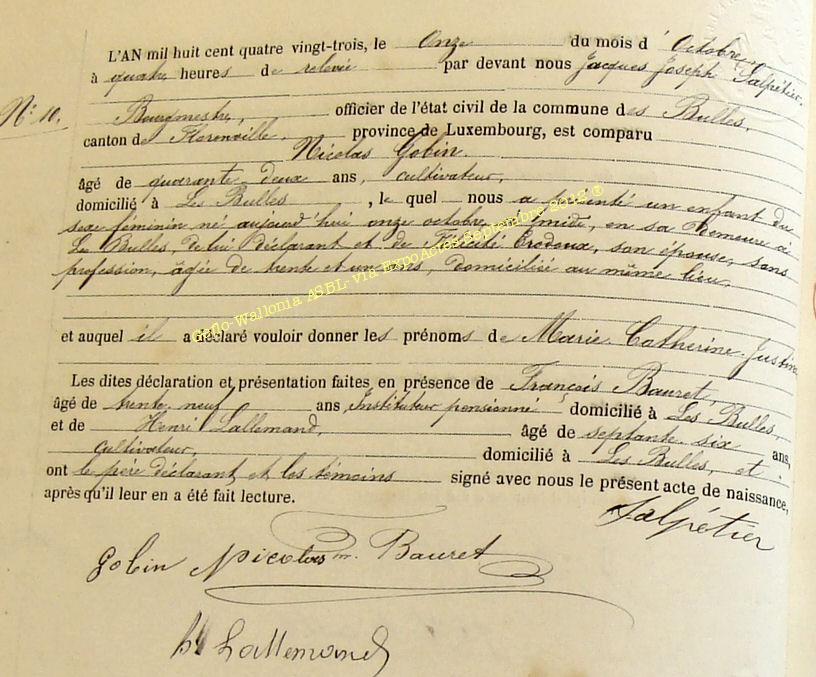 L'AN mil huit cent quatre vingt-trois, le Onze du mois d'Octobre
à quatre heures de relevée par devant nous Jacques Joseph Salpétier,
N° 10. Bourgmestre, officier de l'état civil de la commune des Bulles,
canton de Florenville, province de Luxembourg, est comparu
Nicolas Gobin.
âgé de quarante deux ans, cultivateur,
domicilié à Les Bulles, le quel nous a présenté un enfant du
sexe féminin né aujourd'hui onze octobre, midi, en sa demeure à
Les Bulles, de lui déclarant et de Félicité son épouse, sans
profession, âgée de trente et un ans, domicilisé au même lieu,
et auquel il a déclaré vouloir donner les prénoms de Marie Catherine Justine
Les dites déclaration et présentation faites en présence de François Bauret,
âgé de trente neuf ans, Instituteur pensionné domicilié à Les Bulles,
et de Henri Lallemand, âgé de septante six ans,
cultivateur, domicilié à Les Bulles, et
ont le père déclarant et les témoins signé avec nous le présent acte de naissance,
après qu'il leur en a été fait lecture.
Salpétier
Gobin Nicolas Bauret
h Lallemand
Geno-Wallonia ASBL via ExpoActes Septembre 2012 ©